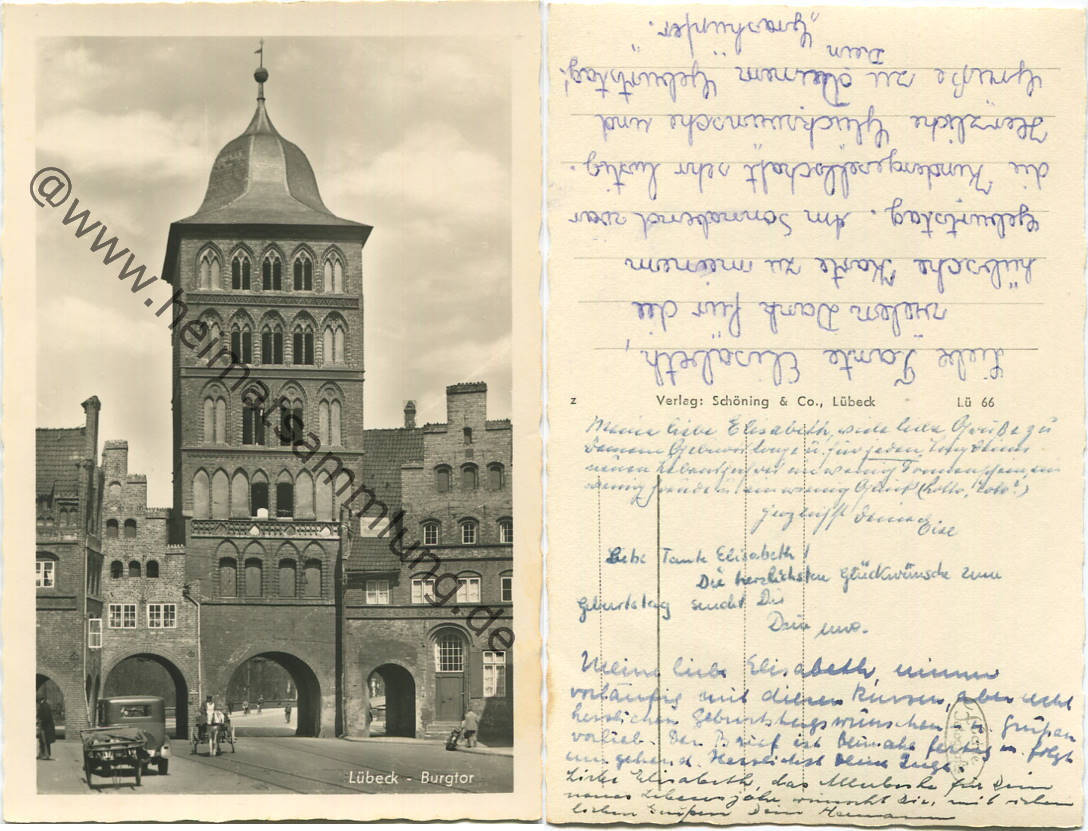 @www.heimatsammlung.de
Lübeck - Burgtor
Liebe Tante Elisabeth,
vielen Dank für die
hübsche Karte zu meinem
Geburtstag. Am Sonnabend war
die Kindergesellschaft sehr lustig.
Herzliche Glückwünsche und
Grüße zu Deinem Geburtstag!
Dein
„Grashüpfer."
z Verlag: Schöning & Co., Lübeck Lü 66
Meine liebe Elisabeth, viele liebe Grüße zu
Deinem Geburtstage u. für jeden Tag Deines
neuen Lebensjahres ein wenig Sonnenschein, ein
wenig Freude u. ein wenig Glück (Lotto, Toto!)
Deine
Liebe Tante Elisabeth!
Die herzlichsten Glückwünsche zum
Geburtstag sendet Dir
Dein Uwe.
Meine liebe Elisabeth, nimm
vorläufig mit diesen kurzen, aber recht
herzlichen Geburtstagswünschen u. Grüßen
vorlieb. Der Brief ist beinahe fertig u. folgt
umgehend. Herzlichst Deine Inge.
Liebe Elisabeth, das Allerbeste für Dein
neues Lebensjahr wünscht Dir, mit vielen
lieben Grüßen Dein Hermann